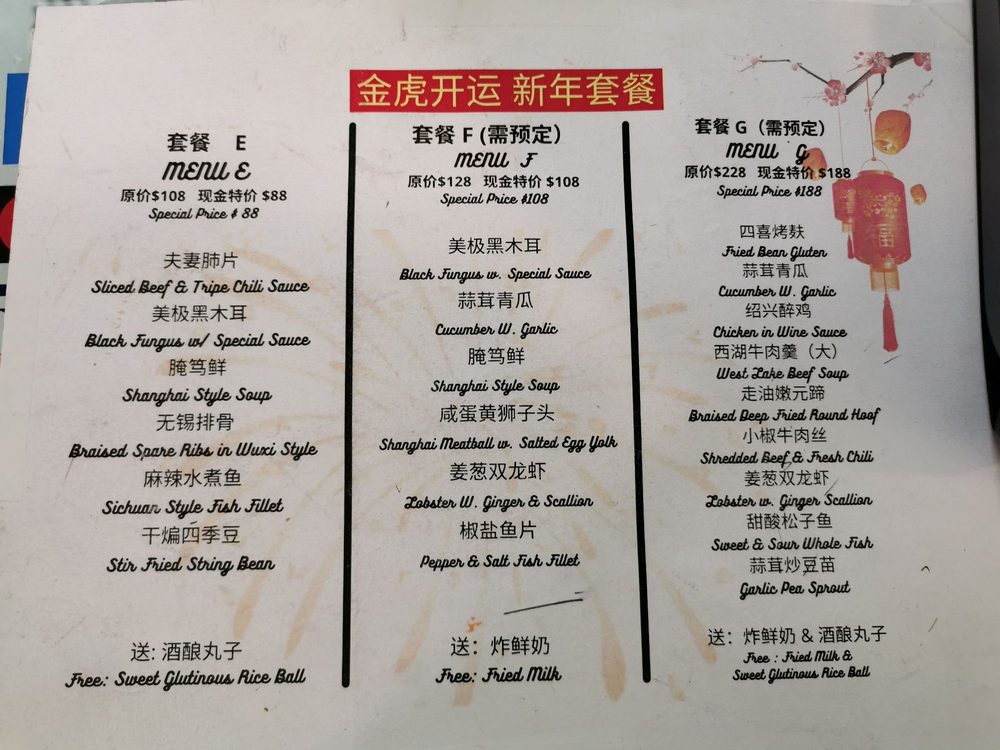 金虎开运 新年套餐
套餐 E
MENU E
原价$108 现金特价 $88
Special Price $ 88
夫妻肺片
Sliced Beef & Tripe Chili Sauce
美极黑木耳
Black Fungus w/ Special Sauce
腌笃鲜
Shanghai Style Soup
无锡排骨
Braised Spare Ribs in Wuxi Style
麻辣水煮鱼
Sichuan Style Fish Fillet
干煸四季豆
Stir Fried String Bean
送: 酒酿丸子
Free: Sweet Glutinous Rice Ball
套餐 F (需预定)
MENU F
原价$128 现金特价 $108
Special Price $108
美极黑木耳
Black Fungus w. Special Sauce
蒜茸青瓜
Cucumber W. Garlic
腌笃鲜
Shanghai Style Soup
咸蛋黄狮子头
Shanghai Meatball w. Salted Egg Yolk
姜葱双龙虾
Lobster W. Ginger & Scallion
椒盐鱼片
Pepper & Salt Fish Fillet
送：炸鲜奶
Free: Fried Milk
套餐 G（需预定）
MENU G
原价$228 现金特价 $188
Special Price $188
四喜烤麸
Fried Bean Gluten
蒜茸青瓜
Cucumber W. Garlic
绍兴醉鸡
Chicken in Wine Sauce
西湖牛肉羹（大）
West Lake Beef Soup
走油嫩元蹄
Braised Deep Fried Round Hoof
小椒牛肉丝
Shredded Beef & Fresh Chili
姜葱双龙虾
Lobster w. Ginger Scallion
甜酸松子鱼
Sweet & Sour Whole Fish
蒜茸炒豆苗
Garlic Pea Sprout
送：炸鲜奶 & 酒酿丸子
Free : Fried Milk &
Sweet Glutinous Rice Ball
福